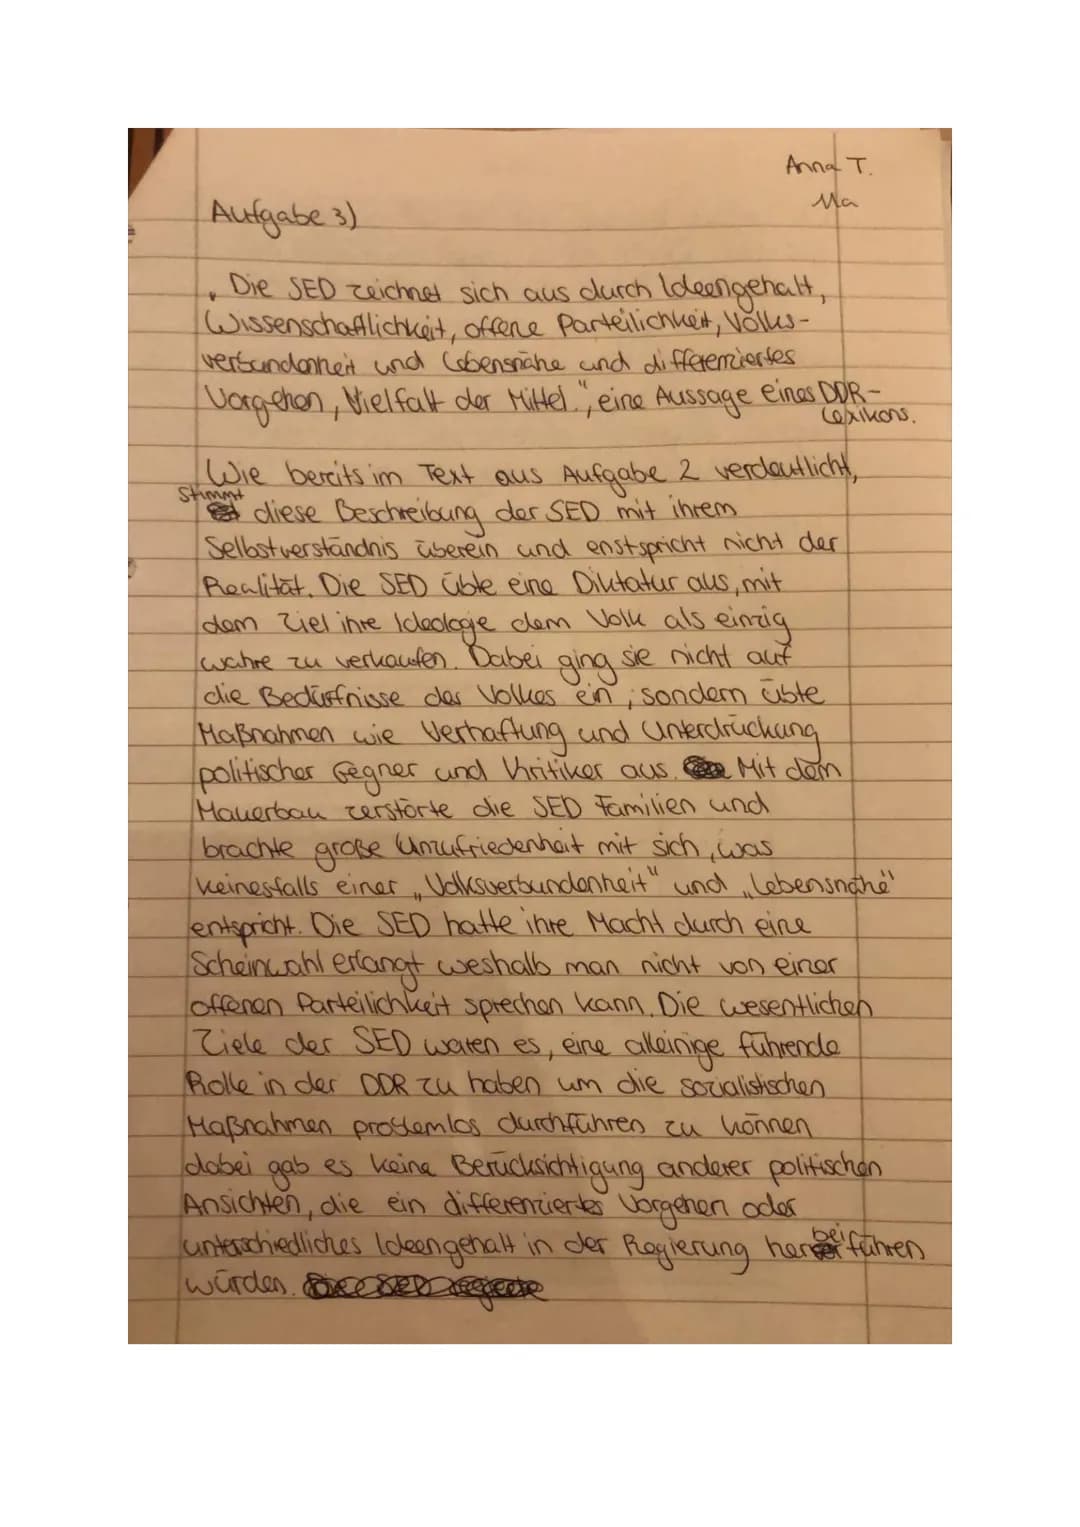 Anna T.
Ma
Aufgabe 3)
„Die SED zeichnet sich aus durch Ideengehalt,
Wissenschaftlichkeit, offene Parteilichkeit, Volks-
verbundenheit und Lebensnähe und differenziertes
Vorgehen, Vielfalt der Mittel.", eine Aussage eines DDR-
Lexikons.
Wie bereits im Text aus Aufgabe 2 verdeutlicht,
stimmt diese Beschreibung der SED mit ihrem
Selbstverständnis überein und enstspricht nicht der
Realität. Die SED übte eine Diktatur aus, mit
dem Ziel ihre Ideologie dem Volk als einzig
wahre zu verkaufen. Dabei ging sie nicht auf
die Bedürfnisse des Volkes ein, sondern übte
Maßnahmen wie Verhaftung und Unterdrückung
politischer Gegner und Kritiker aus. Mit dem
Mauerbau zerstörte die SED Familien und
brachte große Unzufriedenheit mit sich, was
keinesfalls einer „Volksverbundenheit" und „Lebensnähe"
entspricht. Die SED hatte ihre Macht durch eine
Scheinwahl erlangt weshalb man nicht von einer
offenen Parteilichkeit sprechen kann. Die wesentlichen
Ziele der SED waren es, eine alleinige führende
Rolle in der DDR zu haben um die sozialistischen
Maßnahmen problemlos durchführen zu können
dabei gab es keine Berücksichtigung anderer politischen
Ansichten, die ein differenziertes Vorgehen oder
unterschiedliches Ideengehalt in der Regierung herbeiführen
würden.